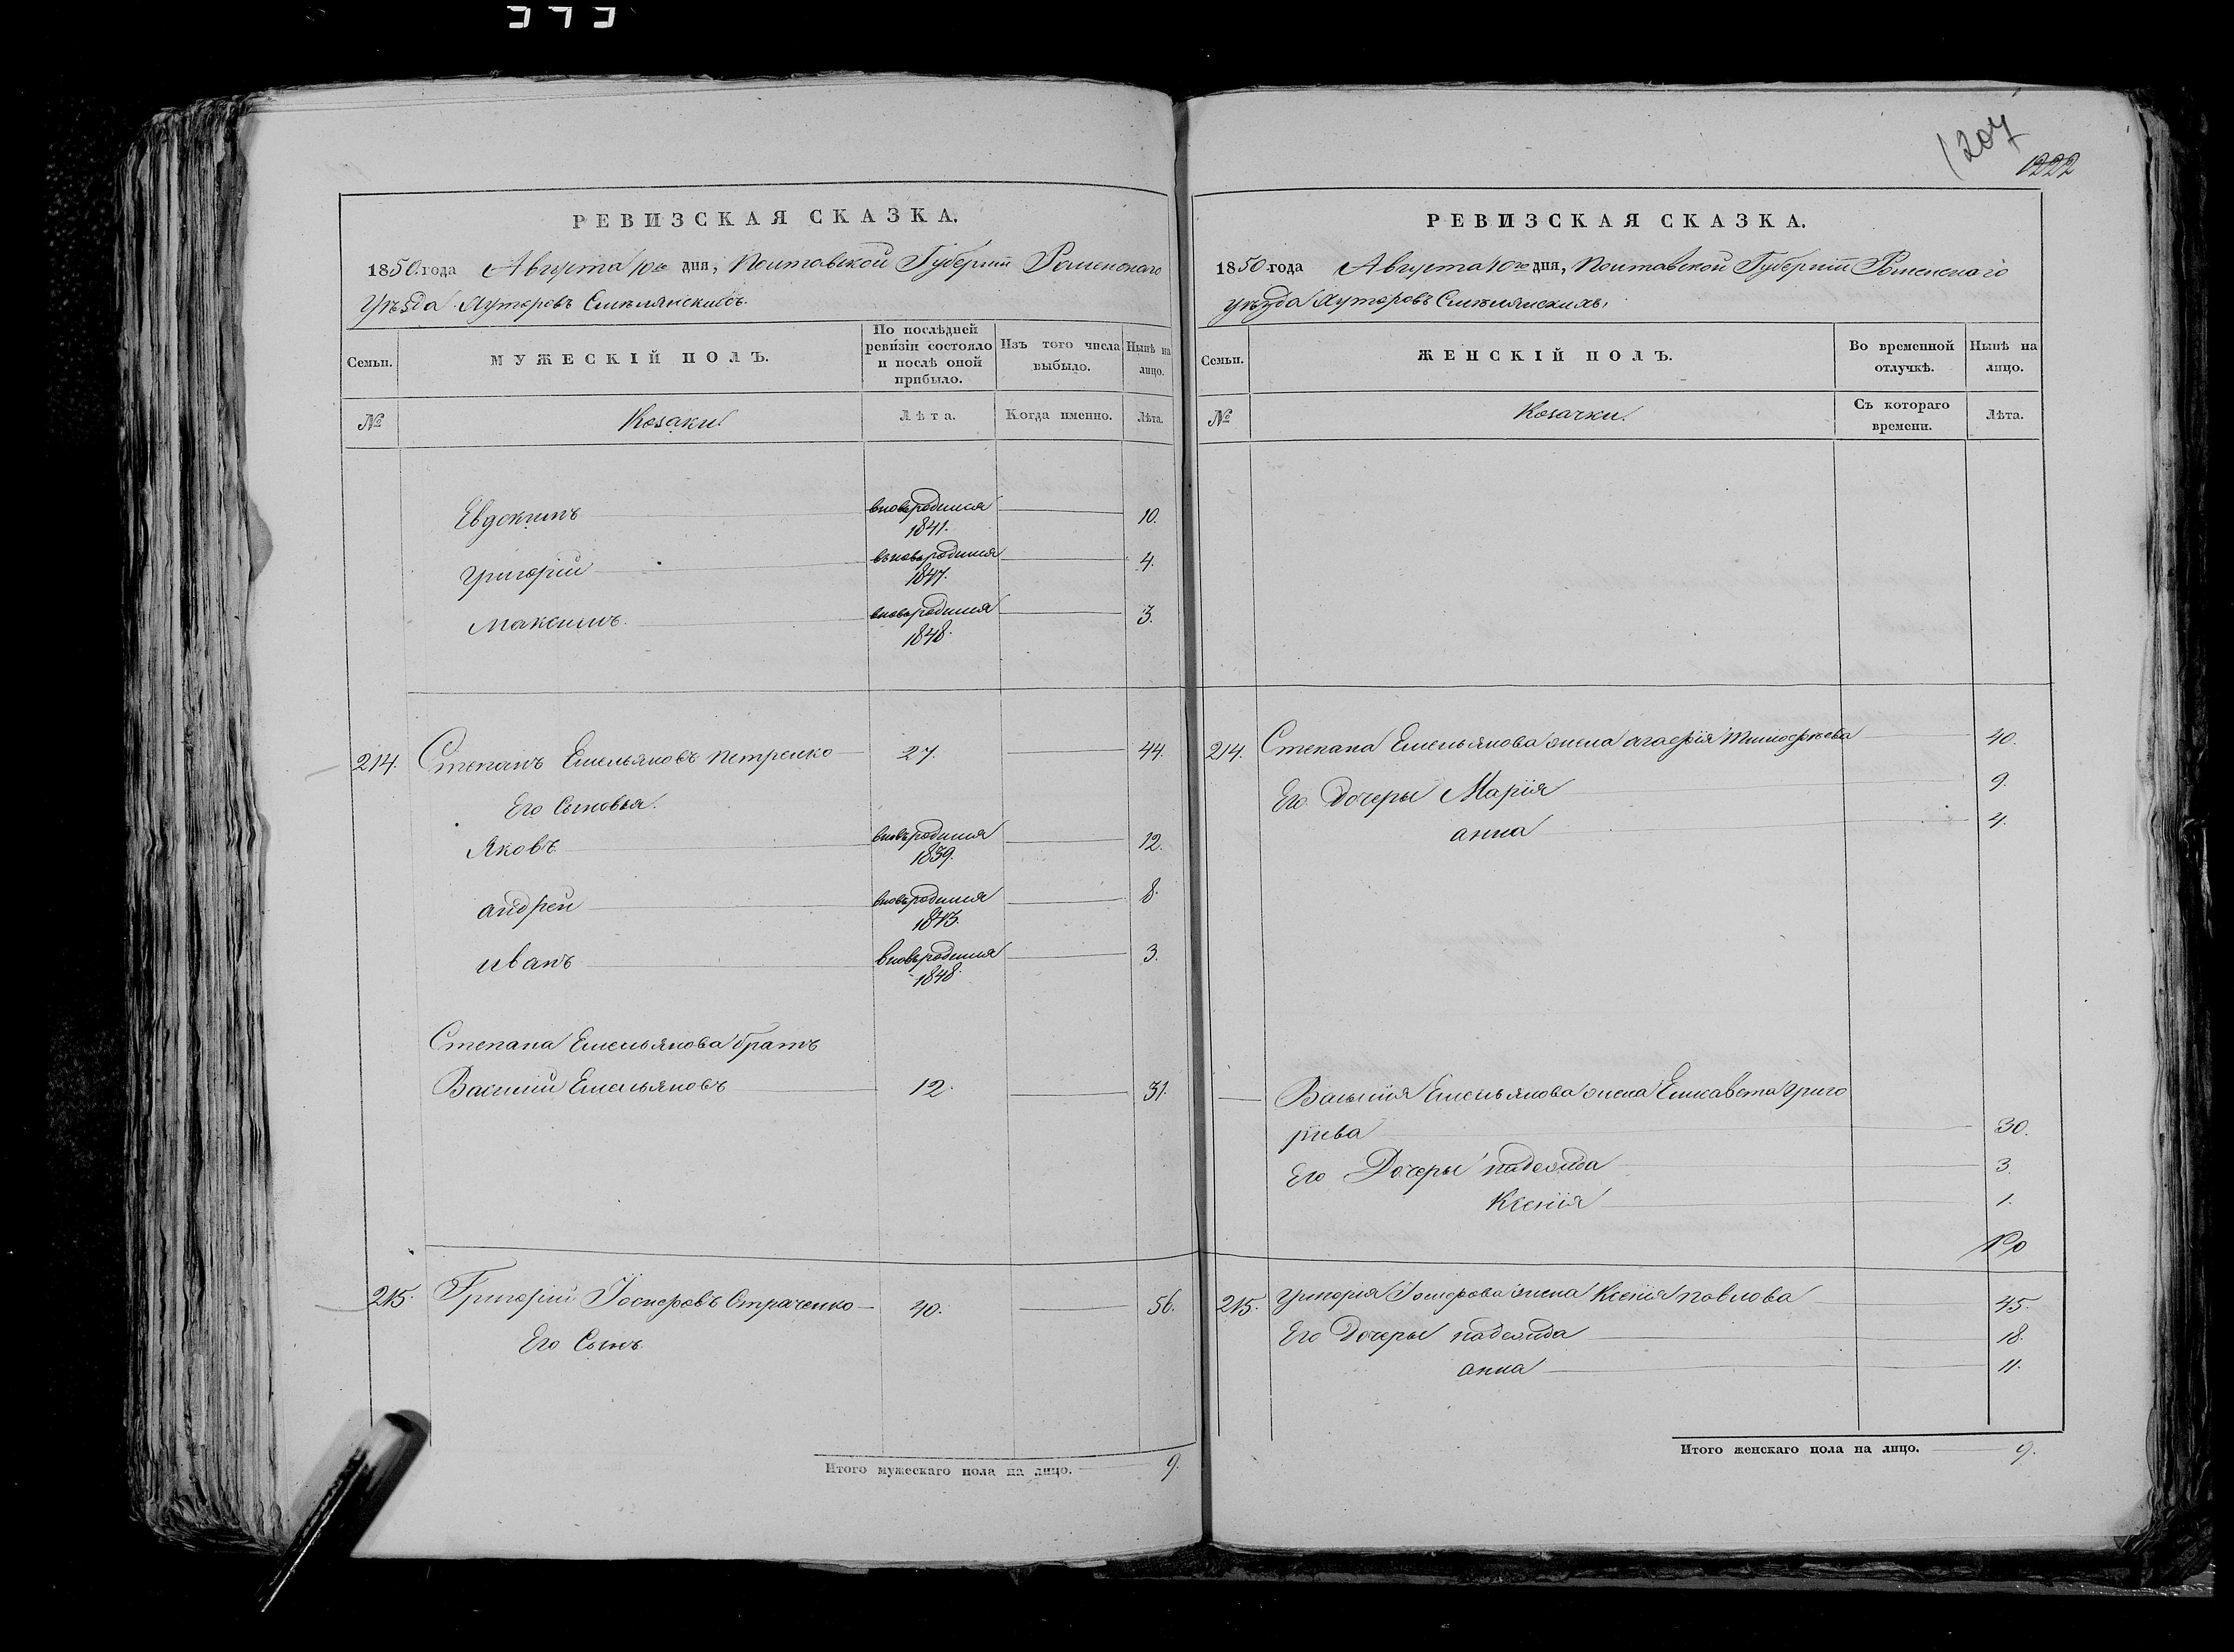 1207
1222
РЕВИЗСКАЯ СКАЗКА.
1850 года Августа 10го дня, Полтавской Губерніи Роменскаго
Уѣзда Хуторовъ Смѣлянскихъ.
Семьи.
МУЖЕСКІЙ ПОЛЪ.
По послѣдней ревизіи состояло и послѣ оной прибыло.
Изъ того числа выбыло.
Нынѣ на лицо.
№
Козаки
Лѣта.
Когда именно.
Лѣта.
Евдокимъ вновьродился 1841. 10.
Григорій вновьродился 1847. 4.
Максимъ вновьродился 1848. 3.
214. Степанъ Емельяновъ Петренко 27. 44.
Его Сыновья.
Яковъ вновьродился 1839. 12.
андрей вновьродился 1843. 8.
иванъ вновьродился 1848. 3.
Степана Емельянова братъ
Василій Емельяновъ 12. 31.
215. Григорій Іосифовъ Страченко 40. 56.
Его Сынъ
Итого мужескаго пола на лицо. 9.
РЕВИЗСКАЯ СКАЗКА.
1850 года Августа 10го дня, Полтавской Губерніи Роменскаго
уѣзда Хуторовъ Смѣлянскихъ,
Семьи.
ЖЕНСКІЙ ПОЛЪ.
Во временной отлучкѣ.
Нынѣ на лицо.
№
Козачки.
Съ котораго времени.
Лѣта.
214. Степана Емельянова жена агафія Тимофѣева 40.
Его Дочеры Марія 9.
анна 4.
Василія Емельянова жена Елисавета Григо
ріева 30.
Его Дочеры надежда 3.
Ксенія 1.
215. Григорія Іосифова жена Ксенія павлова 45.
Его Дочеры надежда 18.
анна 11.
Итого женскаго пола на лицо. 9.